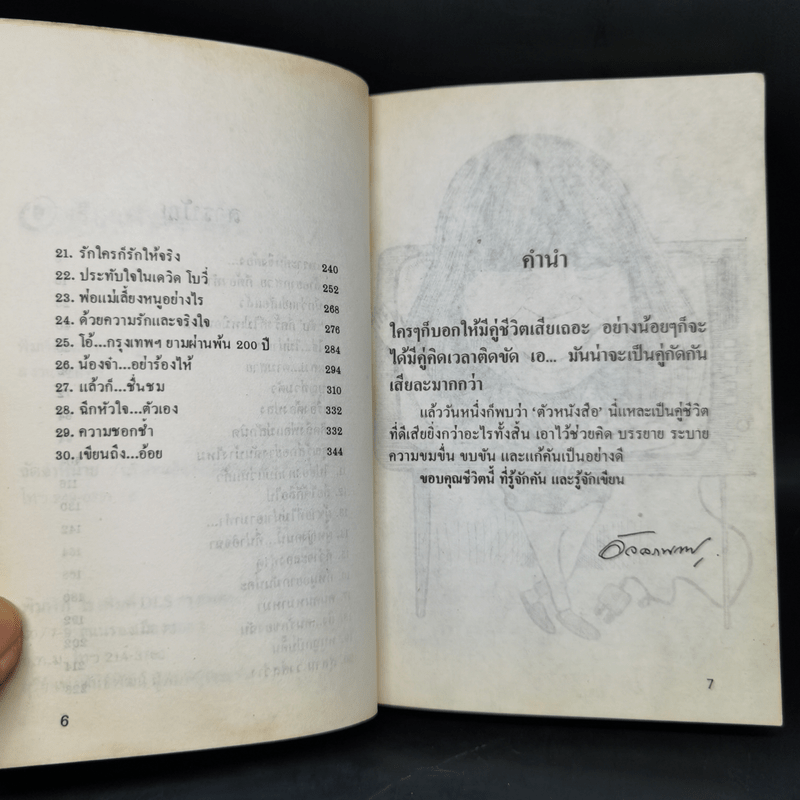 21. รักใครก็รักให้จริง 240
22. ประทับใจในเดวิด โบวี่ 252
23. พ่อแม่เลี้ยงหนูอย่างไร 268
24. ด้วยความรักและจริงใจ 276
25. โอ้...กรุงเทพฯ ยามผ่านพ้น 200 ปี 284
26. น้องจ๋า...อย่าร้องไห้ 294
27. แล้วก็...ชื่นชม 310
28. ฉีกหัวใจ...ตัวเอง 332
29. ความชอกช้ำ 332
30. เขียนถึง...อ้อย 344
6
คำนำ
ใครๆก็บอกให้มีคู่ชีวิตเสียเถอะ อย่างน้อยๆก็จะ
ได้มีคู่คิดเวลาติดขัด เอ... มันน่าจะเป็นคู่กัดกัน
เสียละมากกว่า
แล้ววันหนึ่งก็พบว่า ‘ตัวหนังสือ’ นี่แหละเป็นคู่ชีวิต
ที่ดีเสียยิ่งกว่าอะไรทั้งสิ้น เอาไว้ช่วยคิด บรรยาย ระบาย
ความขมขื่น ขบขัน และแก้คันเป็นอย่างดี
ขอบคุณชีวิตนี้ ที่รู้จักคัน และรู้จักเขียน
7